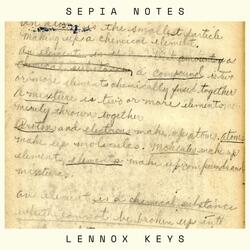 SEPIA NOTES
an atom is the smallest particle
making up a chemical element.
An element
a compound is two
or more elements chemically fused together
A mixture is two or more elements
merely thrown together
Protons and electrons make up atoms, atoms
make up molecules. Molecules make up
elements, elements make up compounds and
mixtures.
An element is a chemical substance
which cannot be broken up into
LENNOX KEYS